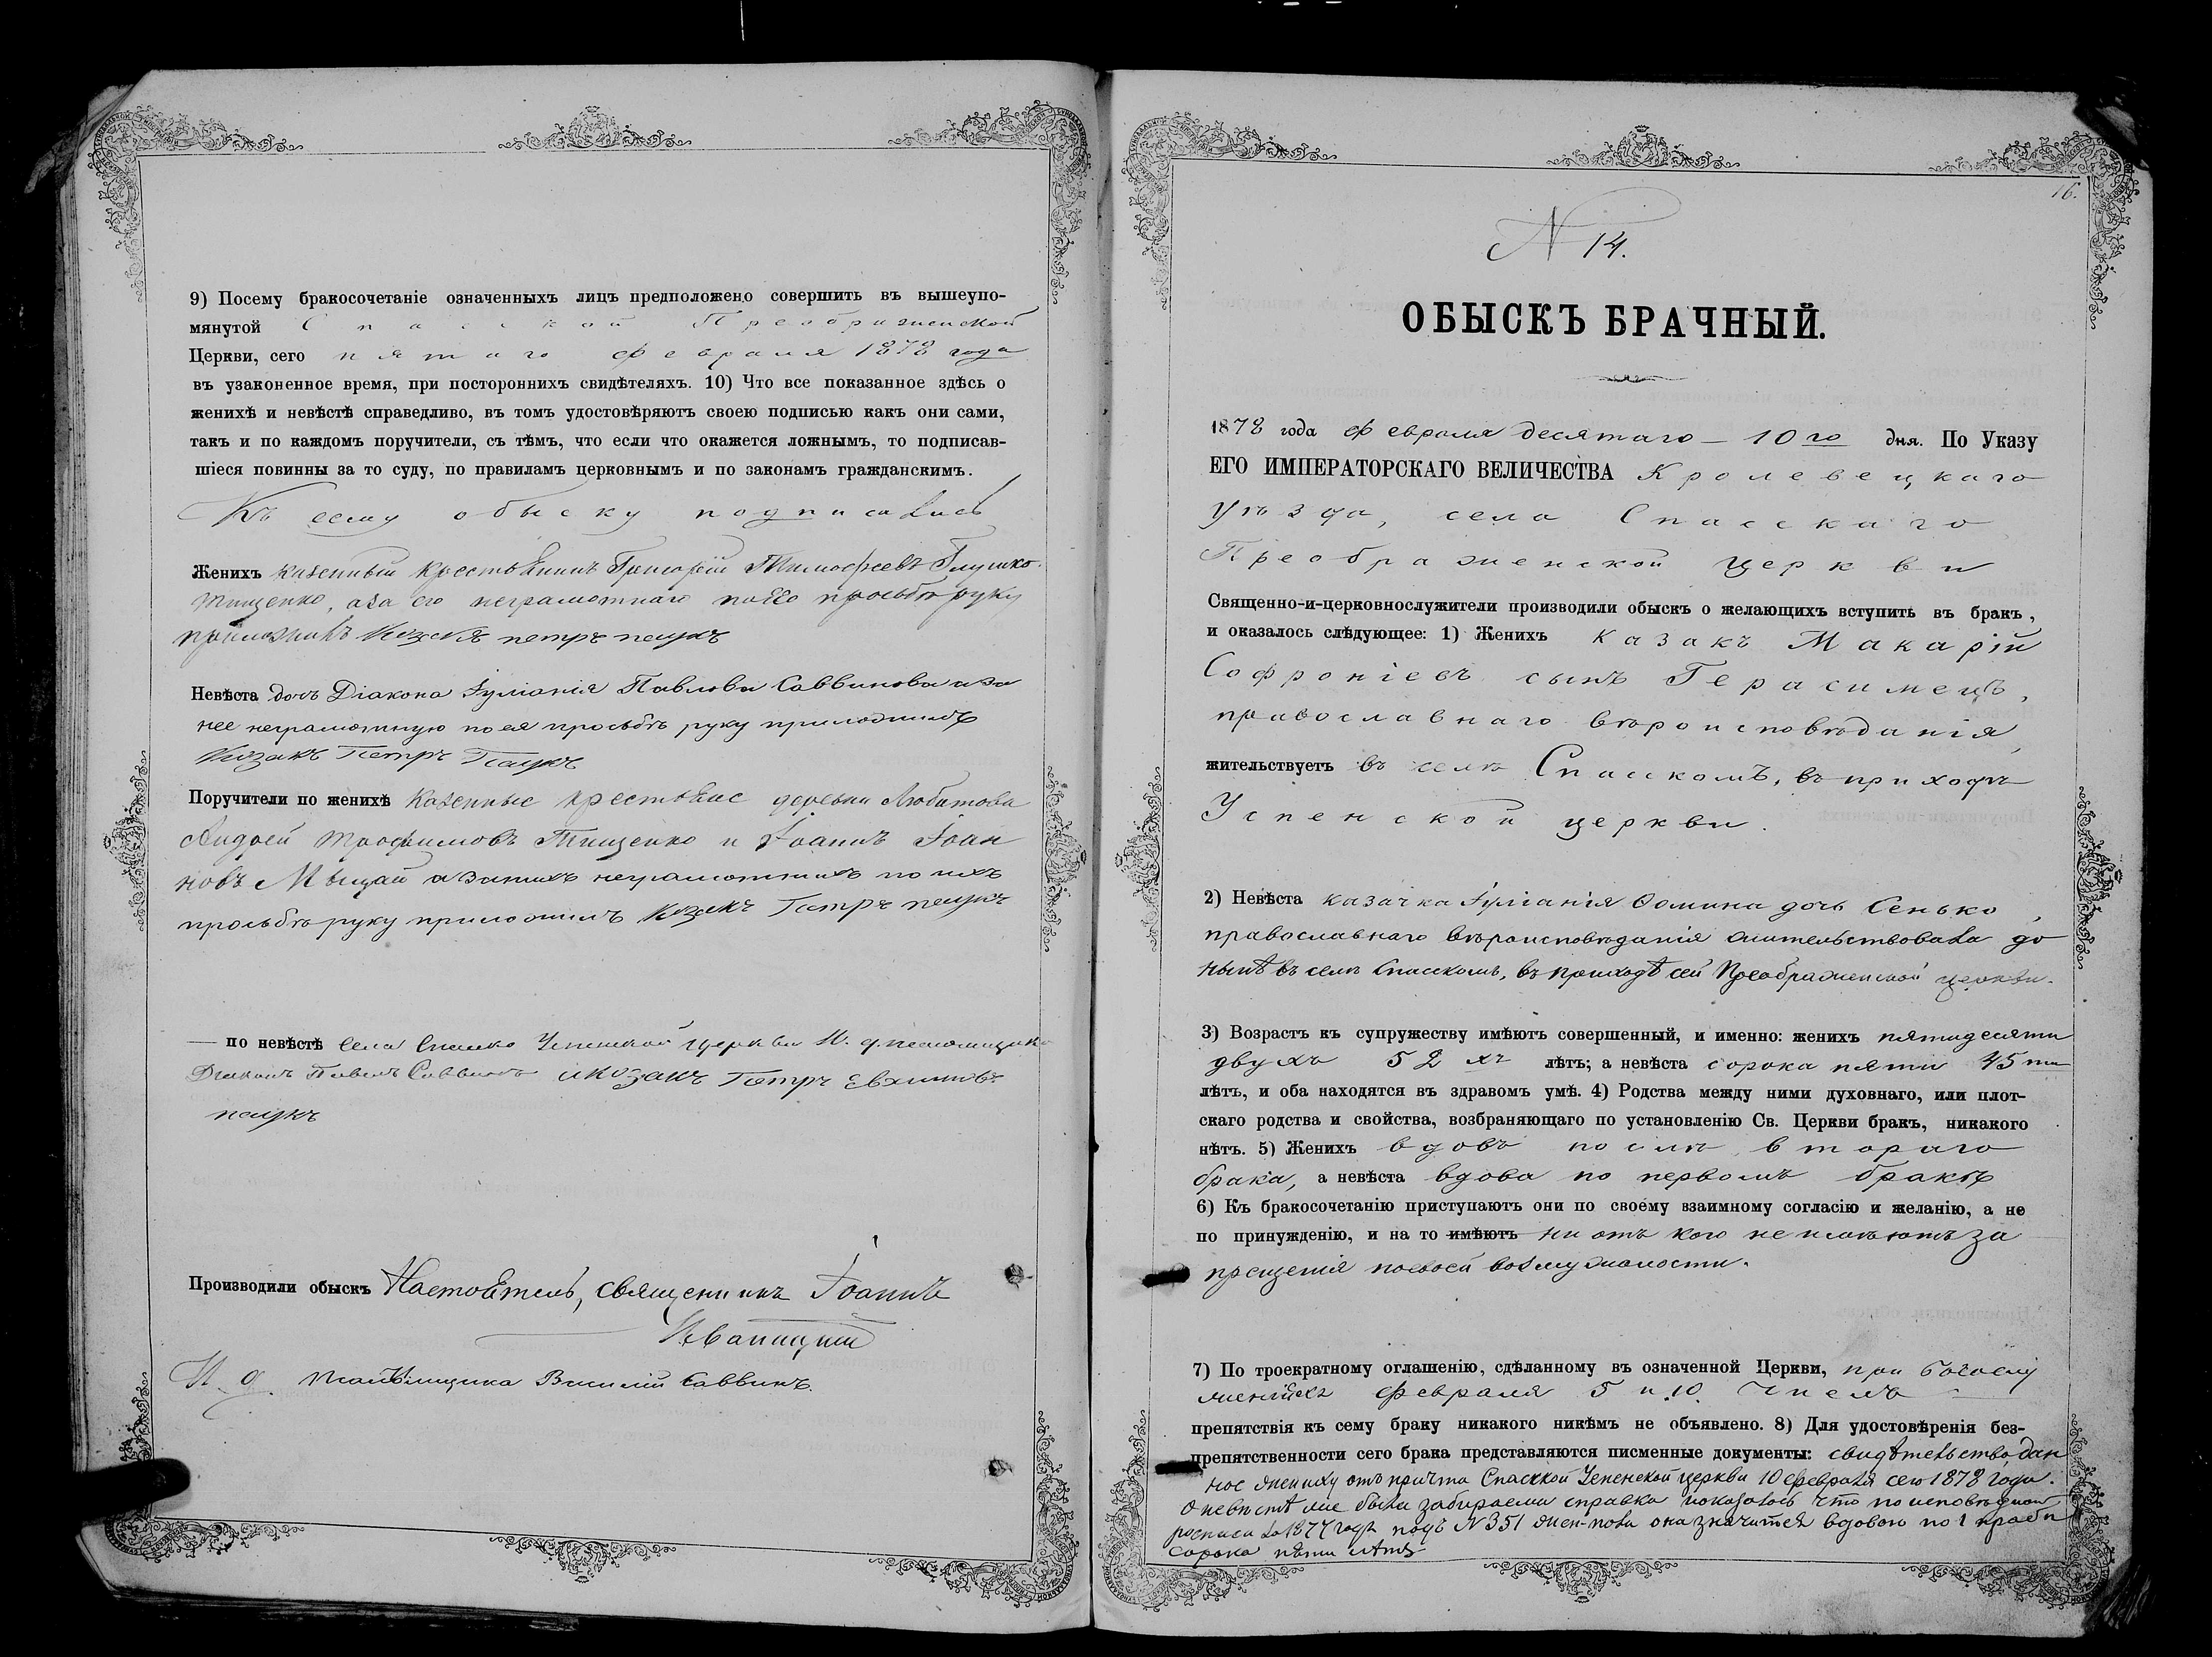 9) Посему бракосочетаніе означенныхъ лицъ предположено совершить въ вышеупо-
мянутой Спасской Преображенской
Церкви, сего пятаго февраля 1878 года
въ узаконенное время, при постороннихъ свидѣтеляхъ. 10) Что все показанное здѣсь о
женихѣ и невѣстѣ справедливо, въ томъ удостовѣряютъ своею подписью какъ они сами,
такъ и по каждомъ поручители, съ тѣмъ, что если что окажется ложнымъ, то подписав-
шіеся повинны за то суду, по правиламъ церковнымъ и по законамъ гражданскимъ.
Къ сему обыску подписались
Женихъ казенный крестьянинъ Григорій Тимофеевъ Глушко-
Тищенко, а за его неграмотнаго по его прозьбѣ руку
приложилъ Козакъ петръ паукъ
Невѣста дочь Діакона Іуліанія Павлова Саввинова а за
нее неграмотную по ея прозьбѣ руку приложилъ
Козакъ Петръ Паукъ
Поручители по женихѣ казенные крестьяне деревни Любитова
Андрей Трофимовъ Тищенко и Іоаннъ Іоан
новъ Мыцай а за нихъ неграмотныхъ по ихъ
прозьбѣ руку приложилъ Козакъ Петръ паукъ
— по невѣстѣ села Спаско Успенской церкви И. д. псаломщика
Діаконъ Павелъ Саввинъ и козакъ Петръ Евхимовъ
паукъ
Производили обыскъ Настоятель, священникъ Іоаннъ
И. д. псаломщика Василій Саввинъ.
16.
N 14.
ОБЫСКЪ БРАЧНЫЙ.
1878 года февраля десятаго — 10го дня. По Указу
ЕГО ИМПЕРАТОРСКАГО ВЕЛИЧЕСТВА Кролевецкаго
уѣзда, села Спасскаго
Преображенской церкви
Священно-и-церковнослужители производили обыскъ о желающихъ вступить въ бракъ,
и оказалось слѣдующее: 1) Женихъ казакъ Макарій
Софроніевъ сынъ Герасимецъ,
православнаго вѣроисповѣданія,
жительствуетъ въ селѣ Спасскомъ, въ приходѣ
Успенской церкви.
2) Невѣста казачка Іуліанія Ѳомина дочь Сенько,
православнаго вѣроисповѣданія жительствовала до
нынѣ въ селѣ Спасскомъ, въ приходѣ сей Преображенской церкви.
3) Возрастъ къ супружеству имѣютъ совершенный, и именно: женихъ пятидесяти
двухъ 52 хъ лѣтъ; а невѣста сорока пяти 45 ти
лѣтъ, и оба находятся въ здравомъ умѣ. 4) Родства между ними духовнаго, или плот-
скаго родства и свойства, возбраняющаго по установленію Св. Церкви бракъ, никакого
нѣтъ. 5) Женихъ вдовъ послѣ втораго
брака, а невѣста вдова по первомъ бракѣ
6) Къ бракосочетанію приступаютъ они по своему взаимному согласію и желанію, а не
по принужденію, и на то имѣютъ ни отъ кого не имѣютъ за
прещенія по своей возмужалости.
7) По троекратному оглашенію, сдѣланному въ означенной Церкви, при богослу
женіяхъ февраля 5 и 10 чиселъ
препятствія къ сему браку никакого никѣмъ не объявлено. 8) Для удостовѣренія без-
препятственности сего брака представляются писменные документы: свидѣтельство, дан
ное жениху отъ причта Спасской Успенской церкви 10 февраля сего 1878 года.
О невѣстѣ же была забираема справка показалось что по исповѣдной
росписи за 1877 годъ подъ N 351 она значится вдовою по 1 бракѣ
сорока пяти лѣтъ